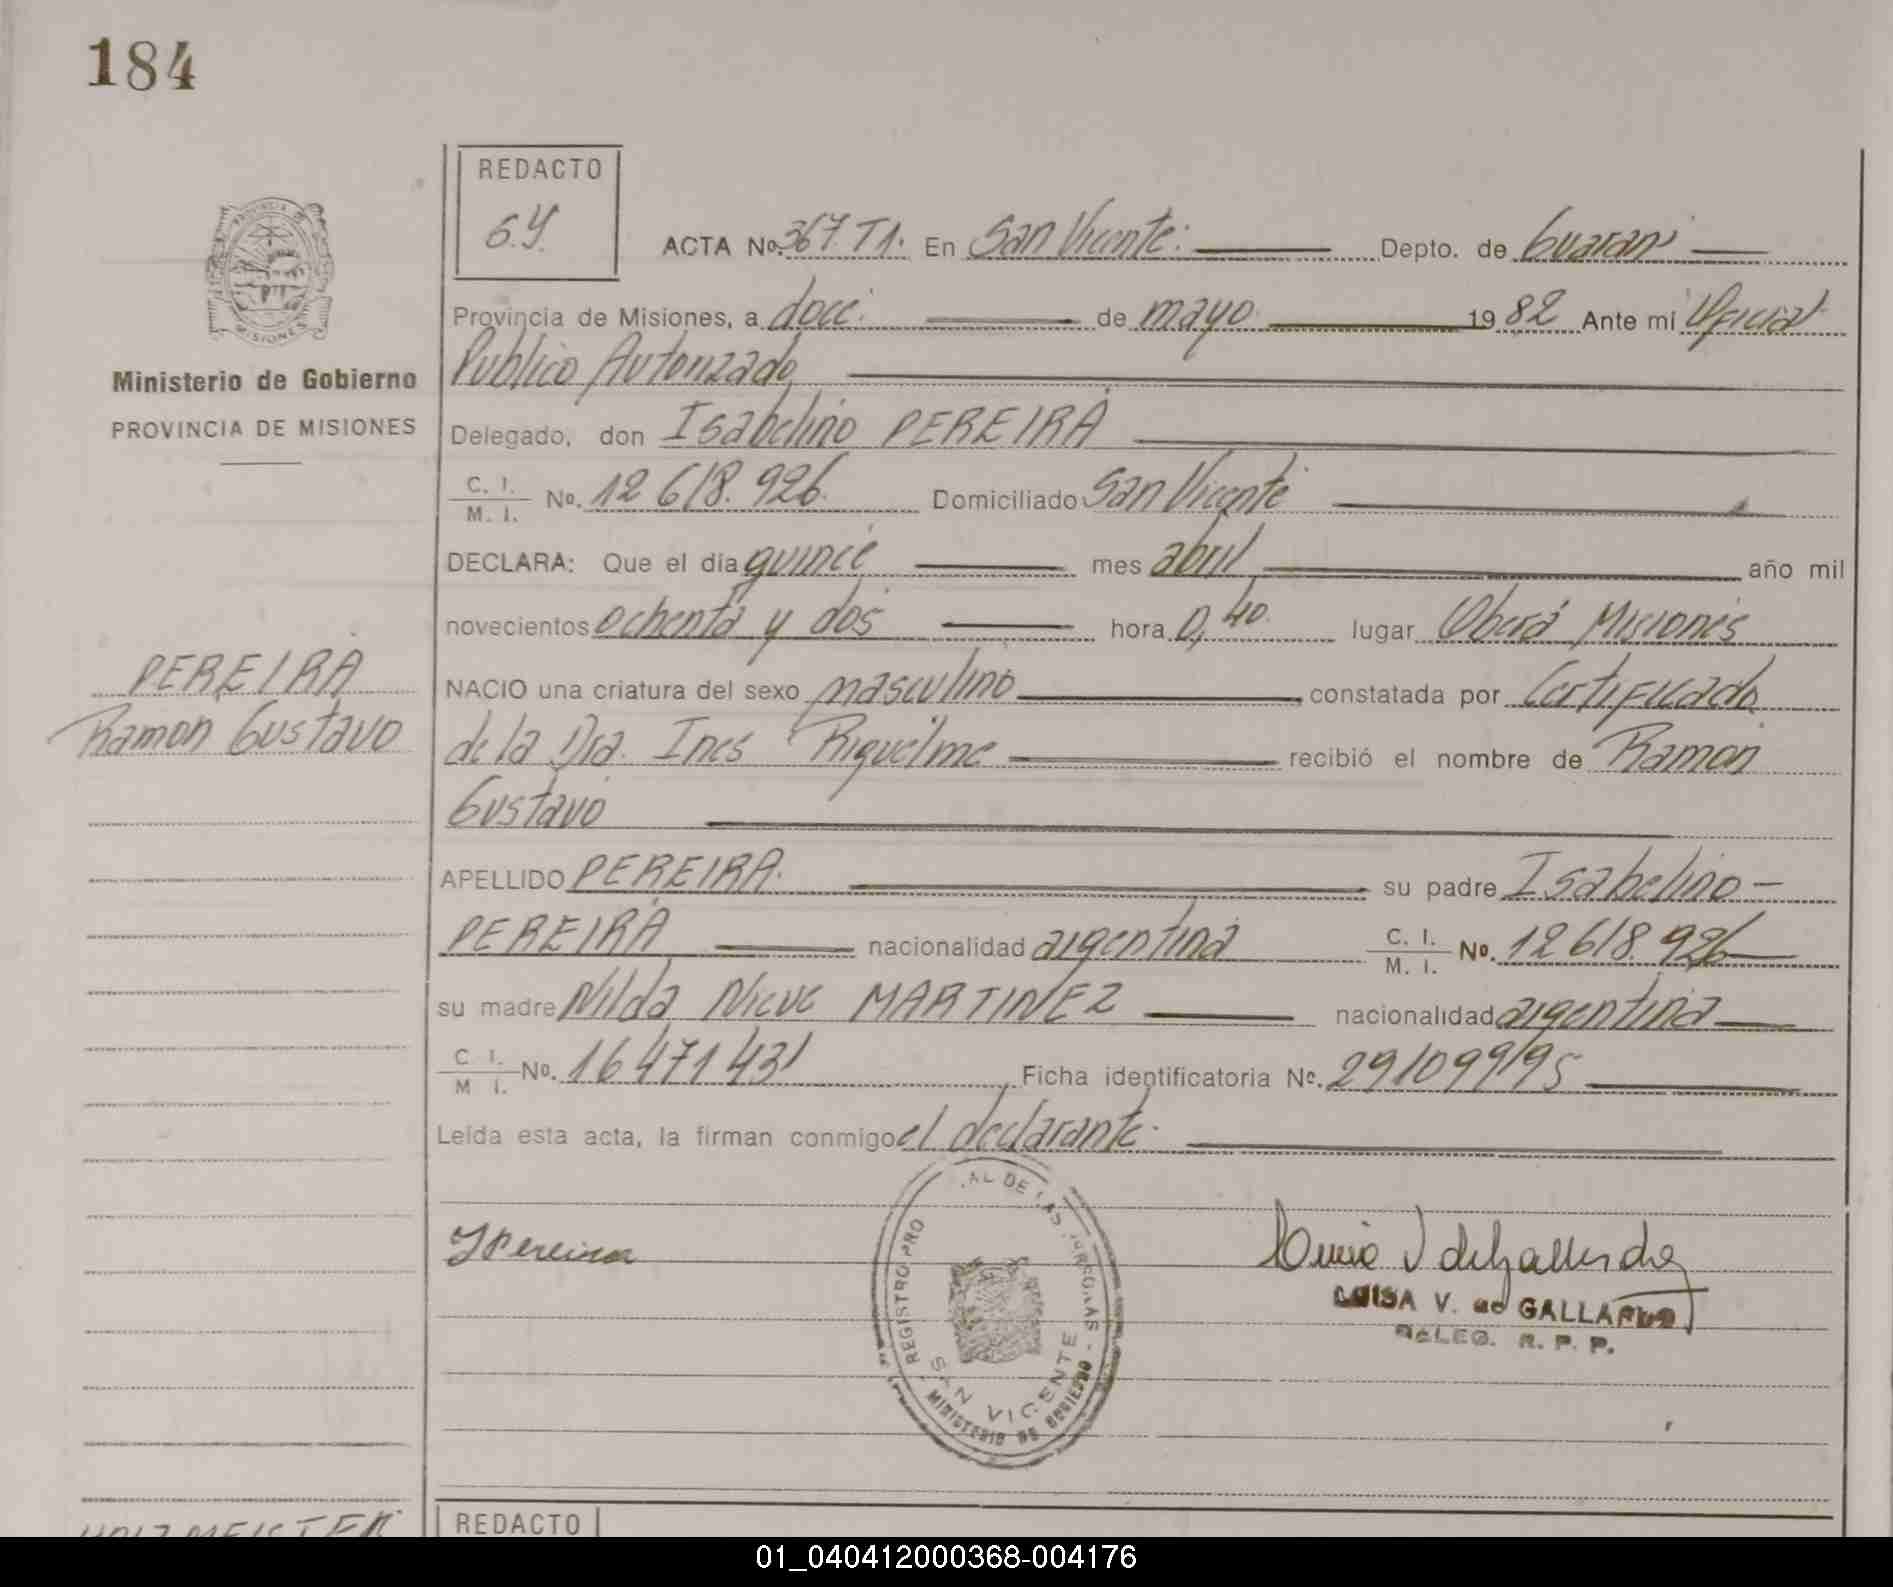 184
REDACTO
G.Y.
ACTA No. 367. T1. En San Vicente. Depto. de Guarani
Provincia de Misiones, a doce. de mayo 1982 Ante mi Oficial
Publico Autorizado
Ministerio de Gobierno
PROVINCIA DE MISIONES
Delegado, don Isabelino PEREIRA
C. I. M. I. No. 12 618.926. Domiciliado San Vicente
DECLARA: Que el dia quince mes abril año mil
novecientos ochenta y dos hora 0,40. lugar Oberá Misiones
PEREIRA
Ramon Gustavo
NACIO una criatura del sexo masculino constatada por Certificado
de la Dra. Ines Riquelme recibió el nombre de Ramon
Gustavo
APELLIDO PEREIRA. su padre Isabelino-
PEREIRA nacionalidad argentina C. I. M. I. No. 12618.926
su madre Nilda Nieve MARTINEZ nacionalidad argentina
C I. M I. No. 16471431 Ficha identificatoria No. 29109995
Leida esta acta, la firman conmigo el declarante.
IPereira
REGISTRO PRO AL DE LAS PERSONAS - MINISTERIO DE GOBIERNO -
SAN VICENTE
LUISA V. de GALLARDO
DELEG. R. P. P.
REDACTO
HOLZMEISTER
01_040412000368-004176